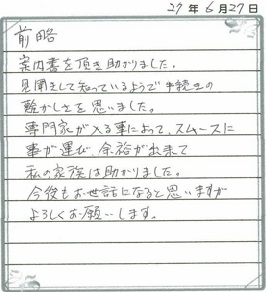 27年6月27日
前略
案内書を頂き助かりました。
見聞きして知っているようで手続きの
難かしさを思いました。
専門家が入る事によって、スムースに
事が運び、余裕が出来て
私の家族は助かりました。
今後もお世話になると思いますが
よろしくお願いします。